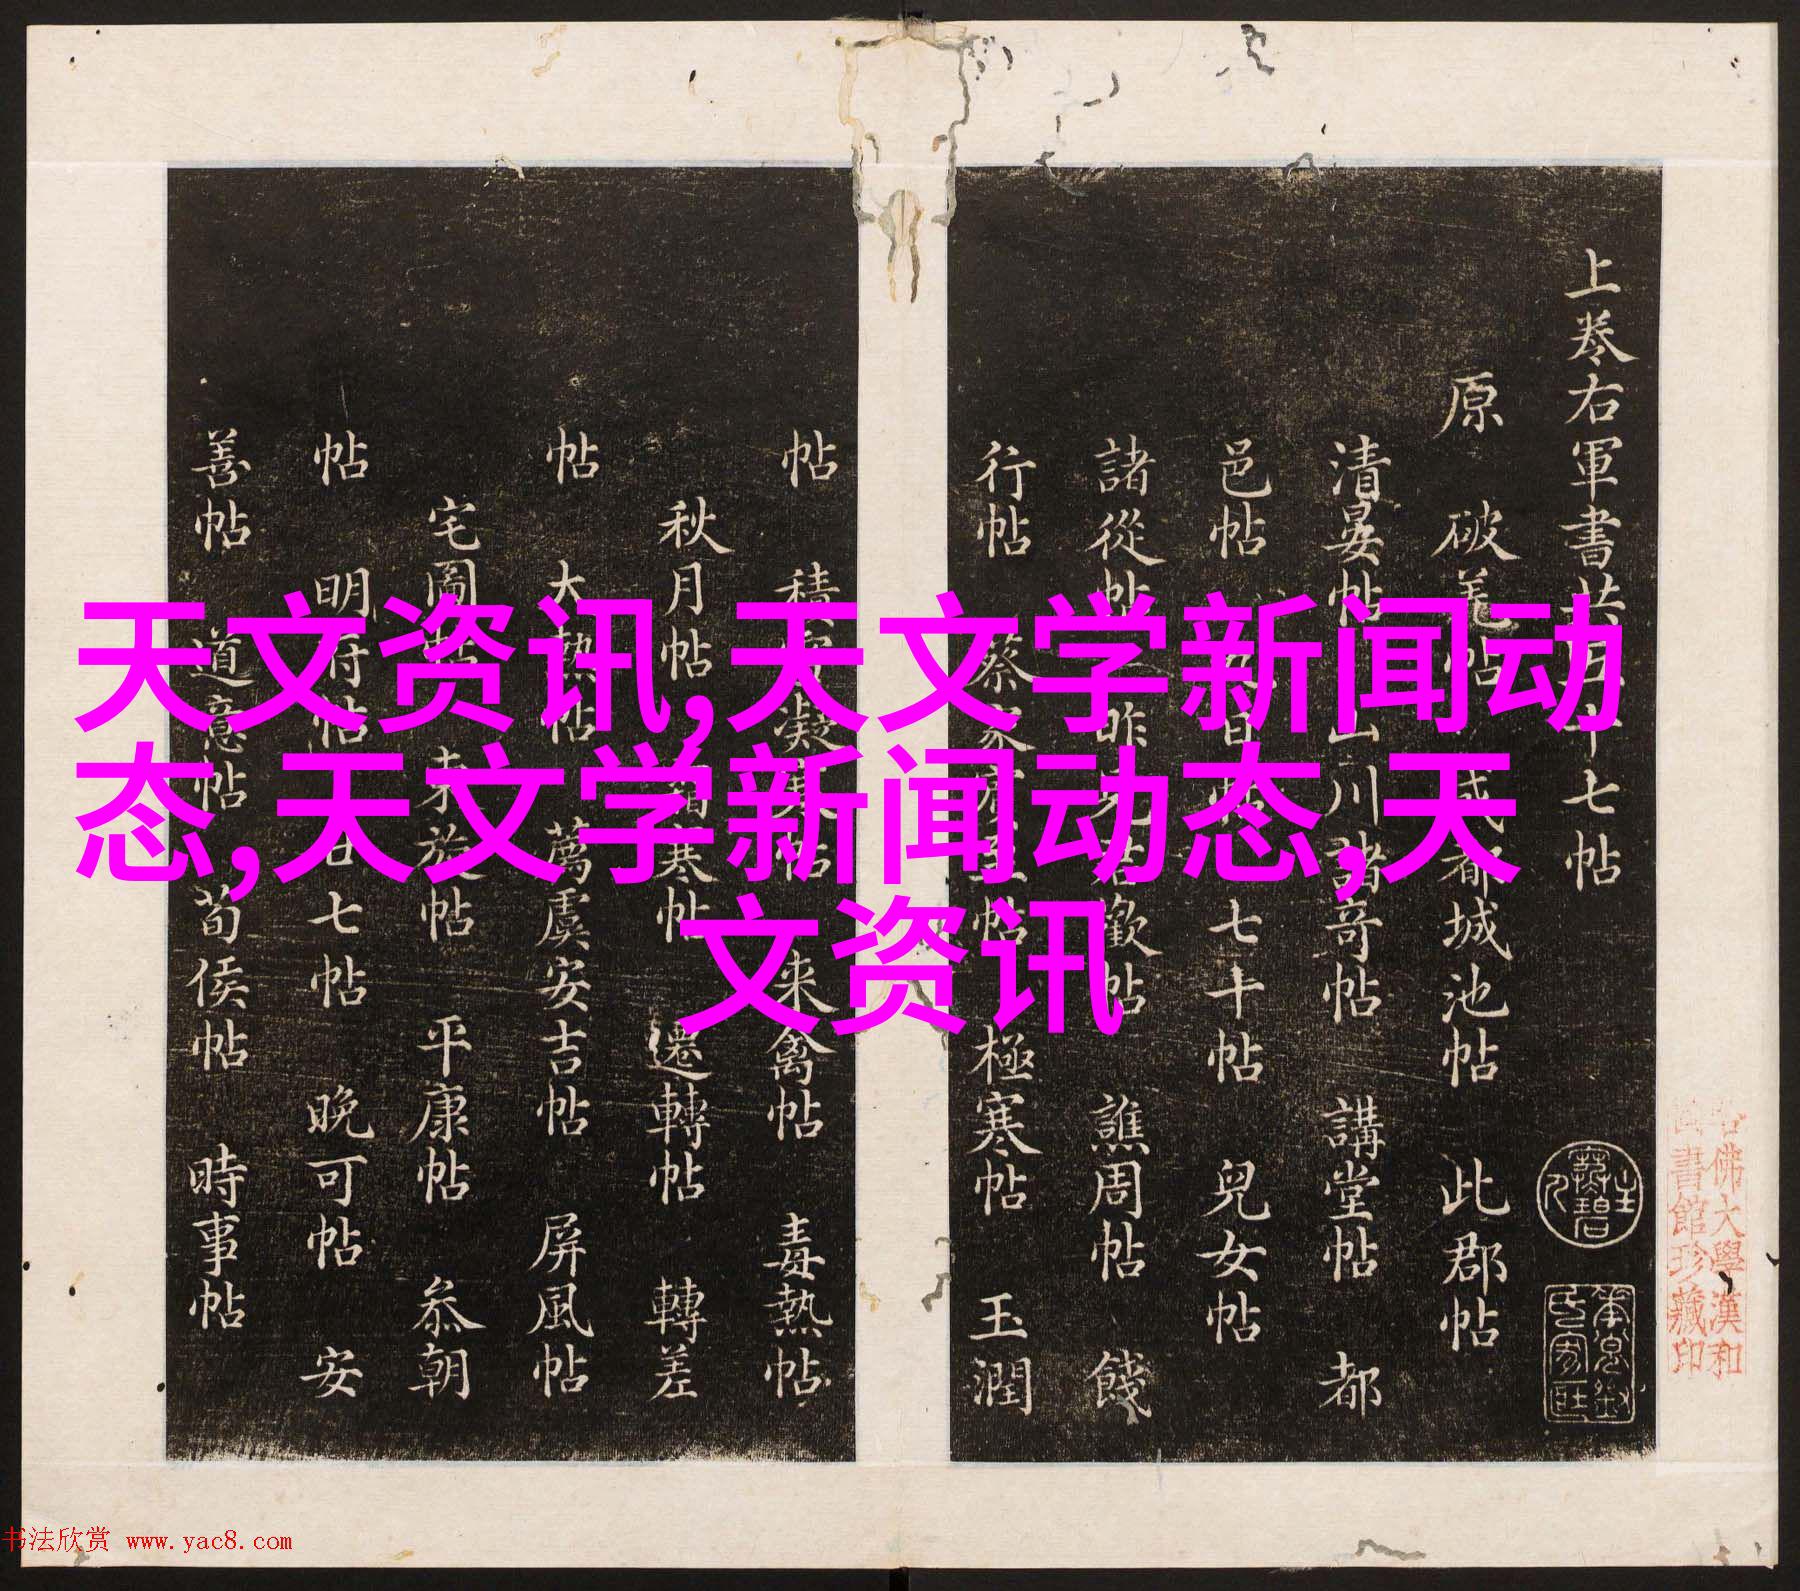 上卷右軍書共五十七帖
原 破羌帖 成都城池帖 此郡帖
清晏帖 山川諸奇帖 講堂帖 都
邑帖 七十帖 兒女帖
諸從帖 譙周帖 餞
行帖 極寒帖 玉潤
帖 來禽帖 毒熱帖
秋月帖 遷轉帖 轉差
帖 大熱帖 薦虞安吉帖 屏風帖
宅圖帖 平康帖 叅朝
帖 明府帖 廿七帖 晚可帖 安
善帖 道意帖 荀侯帖 時事帖
天文资讯,天文学新闻动
态,天文学新闻动态,天
文资讯
佛大學漢和
書館珍藏印
书法欣赏 www.yac8.com